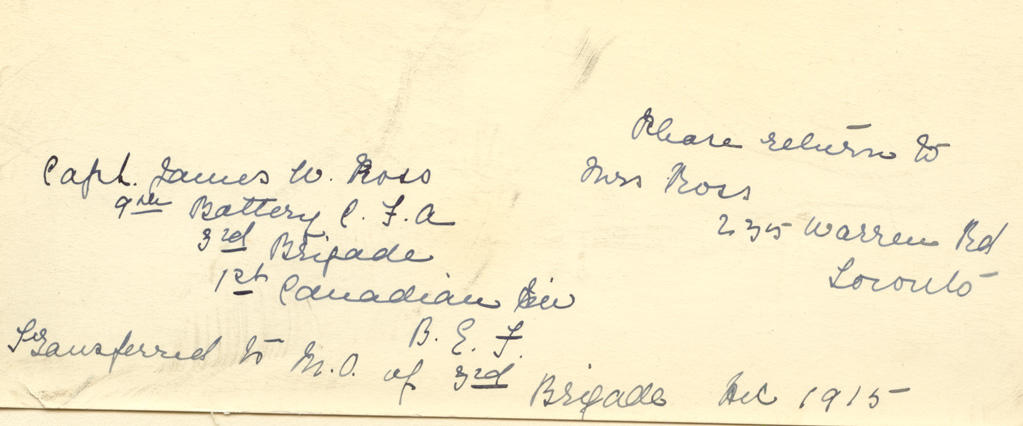 Capt. James W. Ross
9th Battery C. F. A
3rd Brigade
1st Canadian Div
B. E. F.
Transferred to M.O. of 3rd Brigade Dec 1915
Please return to
Mrs Ross
235 Warren Rd
Toronto